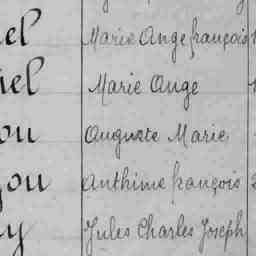 el Marie Ange françois
iel Marie Ange
ou Auguste Marie
you Anthime françois
y Jules Charles Joseph